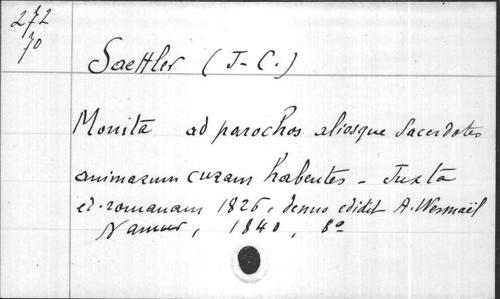 272
70
Saettler (J-C.)
Monita ad parochos aliosque Sacerdotes
animarum curam habentes - Juxta
ed. romanam 1826, denuo edidit A. Wesmaël
Namur, 1840, 8º